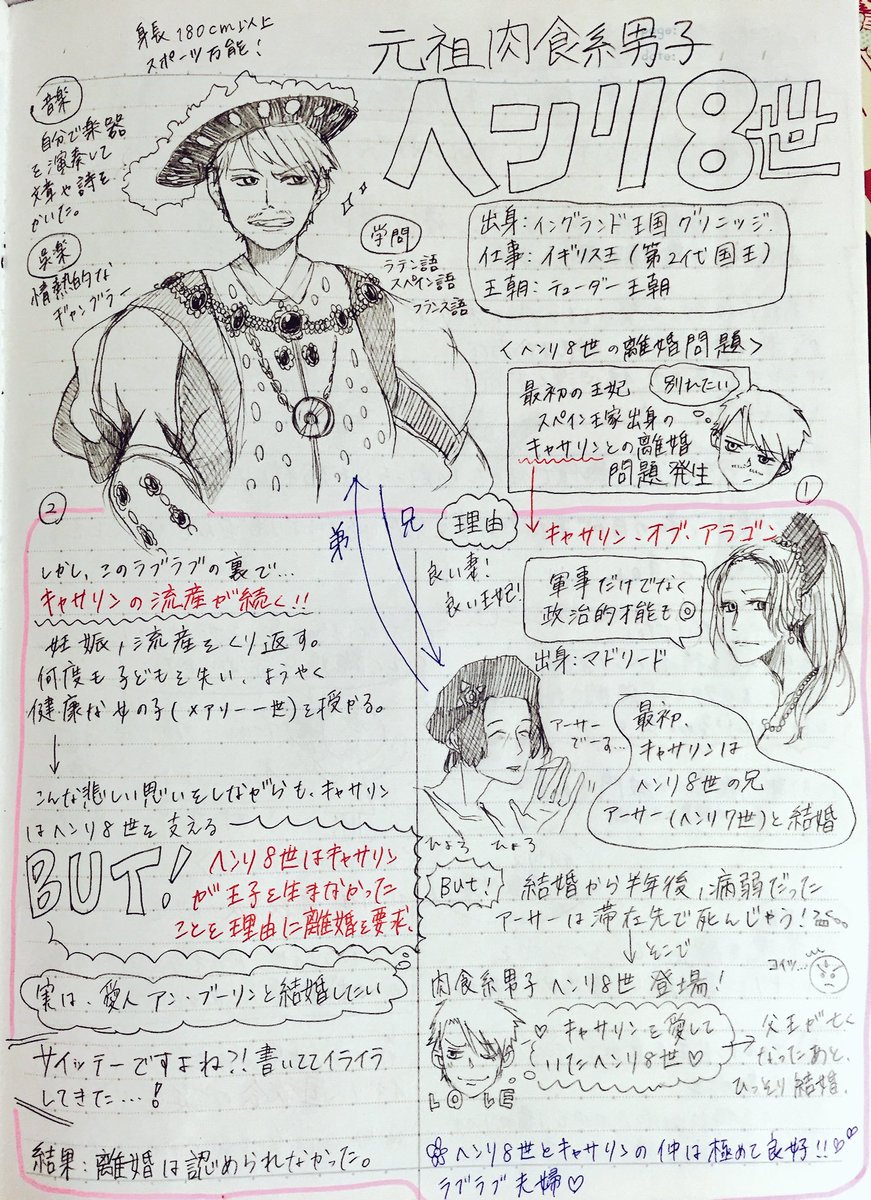 元祖肉食系男子
ヘンリ8世
身長180cm以上
スポーツ万能！
音楽
自分で楽器
を演奏して
文章や詩を
かいた。
娯楽
情熱的な
ギャンブラー
学問
ラテン語
スペイン語
フランス語
出身：イングランド王国グリニッジ.
仕事：イギリス王(第2代国王)
王朝：テューダー王朝
＜ヘンリ8世の離婚問題＞
最初の王妃
スペイン王家出身の
キャサリンとの離婚
問題発生
別れたい
①
理由
キャサリン・オブ・アラゴン
良い妻！
良い王妃！
軍事だけでなく
政治的才能も◎
出身：マドリード
弟
兄
アーサー
でーす…
ひょろ ひょろ
最初、
キャサリンは
ヘンリ8世の兄
アーサー(ヘンリ7世)と結婚
But！
結婚から半年後、病弱だった
アーサーは滞在先で死んじゃう！
そこで
肉食系男子 ヘンリ8世 登場！
コイツ…
LOVE
♡キャサリンを愛して
いたヘンリ8世♡
→父王が亡く
なったあと、
ひっそり結婚.
ヘンリ8世とキャサリンの仲は極めて良好!!♡♡
ラブラブ夫婦♡
②
しかし、このラブラブの裏で…
キャサリンの流産が続く!!
妊娠、流産をくり返す。
何度も子どもを失い、ようやく
健康な女の子(メアリー一世)を授かる。
↓
こんな悲しい思いをしながらも、キャサリン
はヘンリ8世を支える
BUT！
ヘンリ8世はキャサリン
が王子を生まなかった
ことを理由に離婚を要求.
実は、愛人アン・ブーリンと結婚したい
サイッテーですよね?!書いててイライラ
してきた…！
結果：離婚は認められなかった。